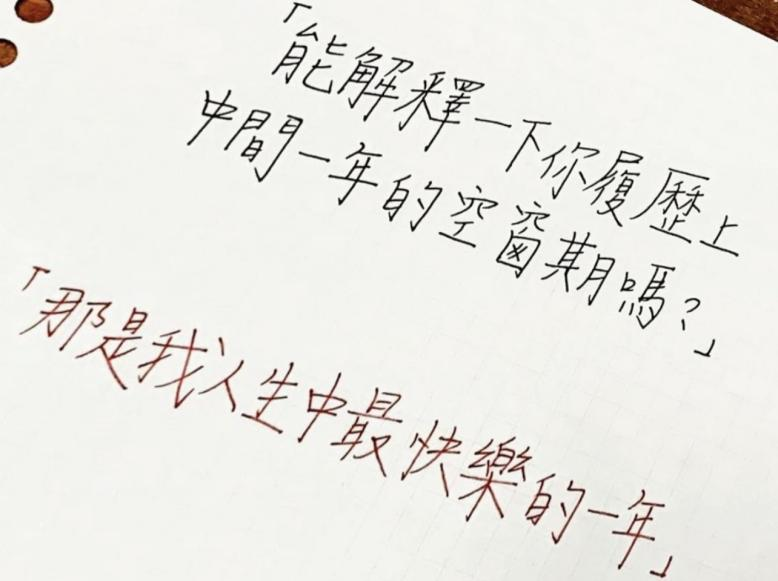 「能解釋一下你履歷上
中間一年的空窗期嗎?」
「那是我人生中最快樂的一年」